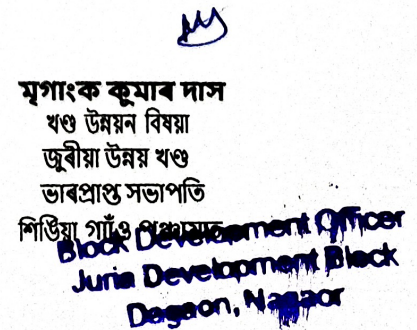 মৃগাংক কুমাৰ দাস
খণ্ড উন্নয়ন বিষয়া
জুৰীয়া উন্নয় খণ্ড
ভাৰপ্ৰাপ্ত সভাপতি
শিঙিয়া গাঁও পঞ্চায়ত
Block Development Officer
Juria Development Block
Dagaon, Nagaon